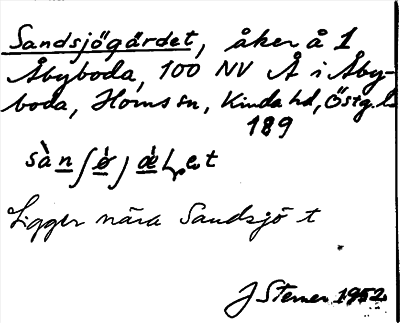 Sandsjögärdet, åker å 1
Åbyboda, 100 NV Å i Åby-
boda, Horns sn, Kinda hd, Östg. l.
189
Ligger nära Sandsjö t
J Sterner 1952